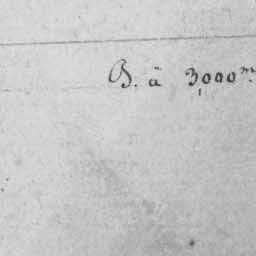 B. à 3,000 m.